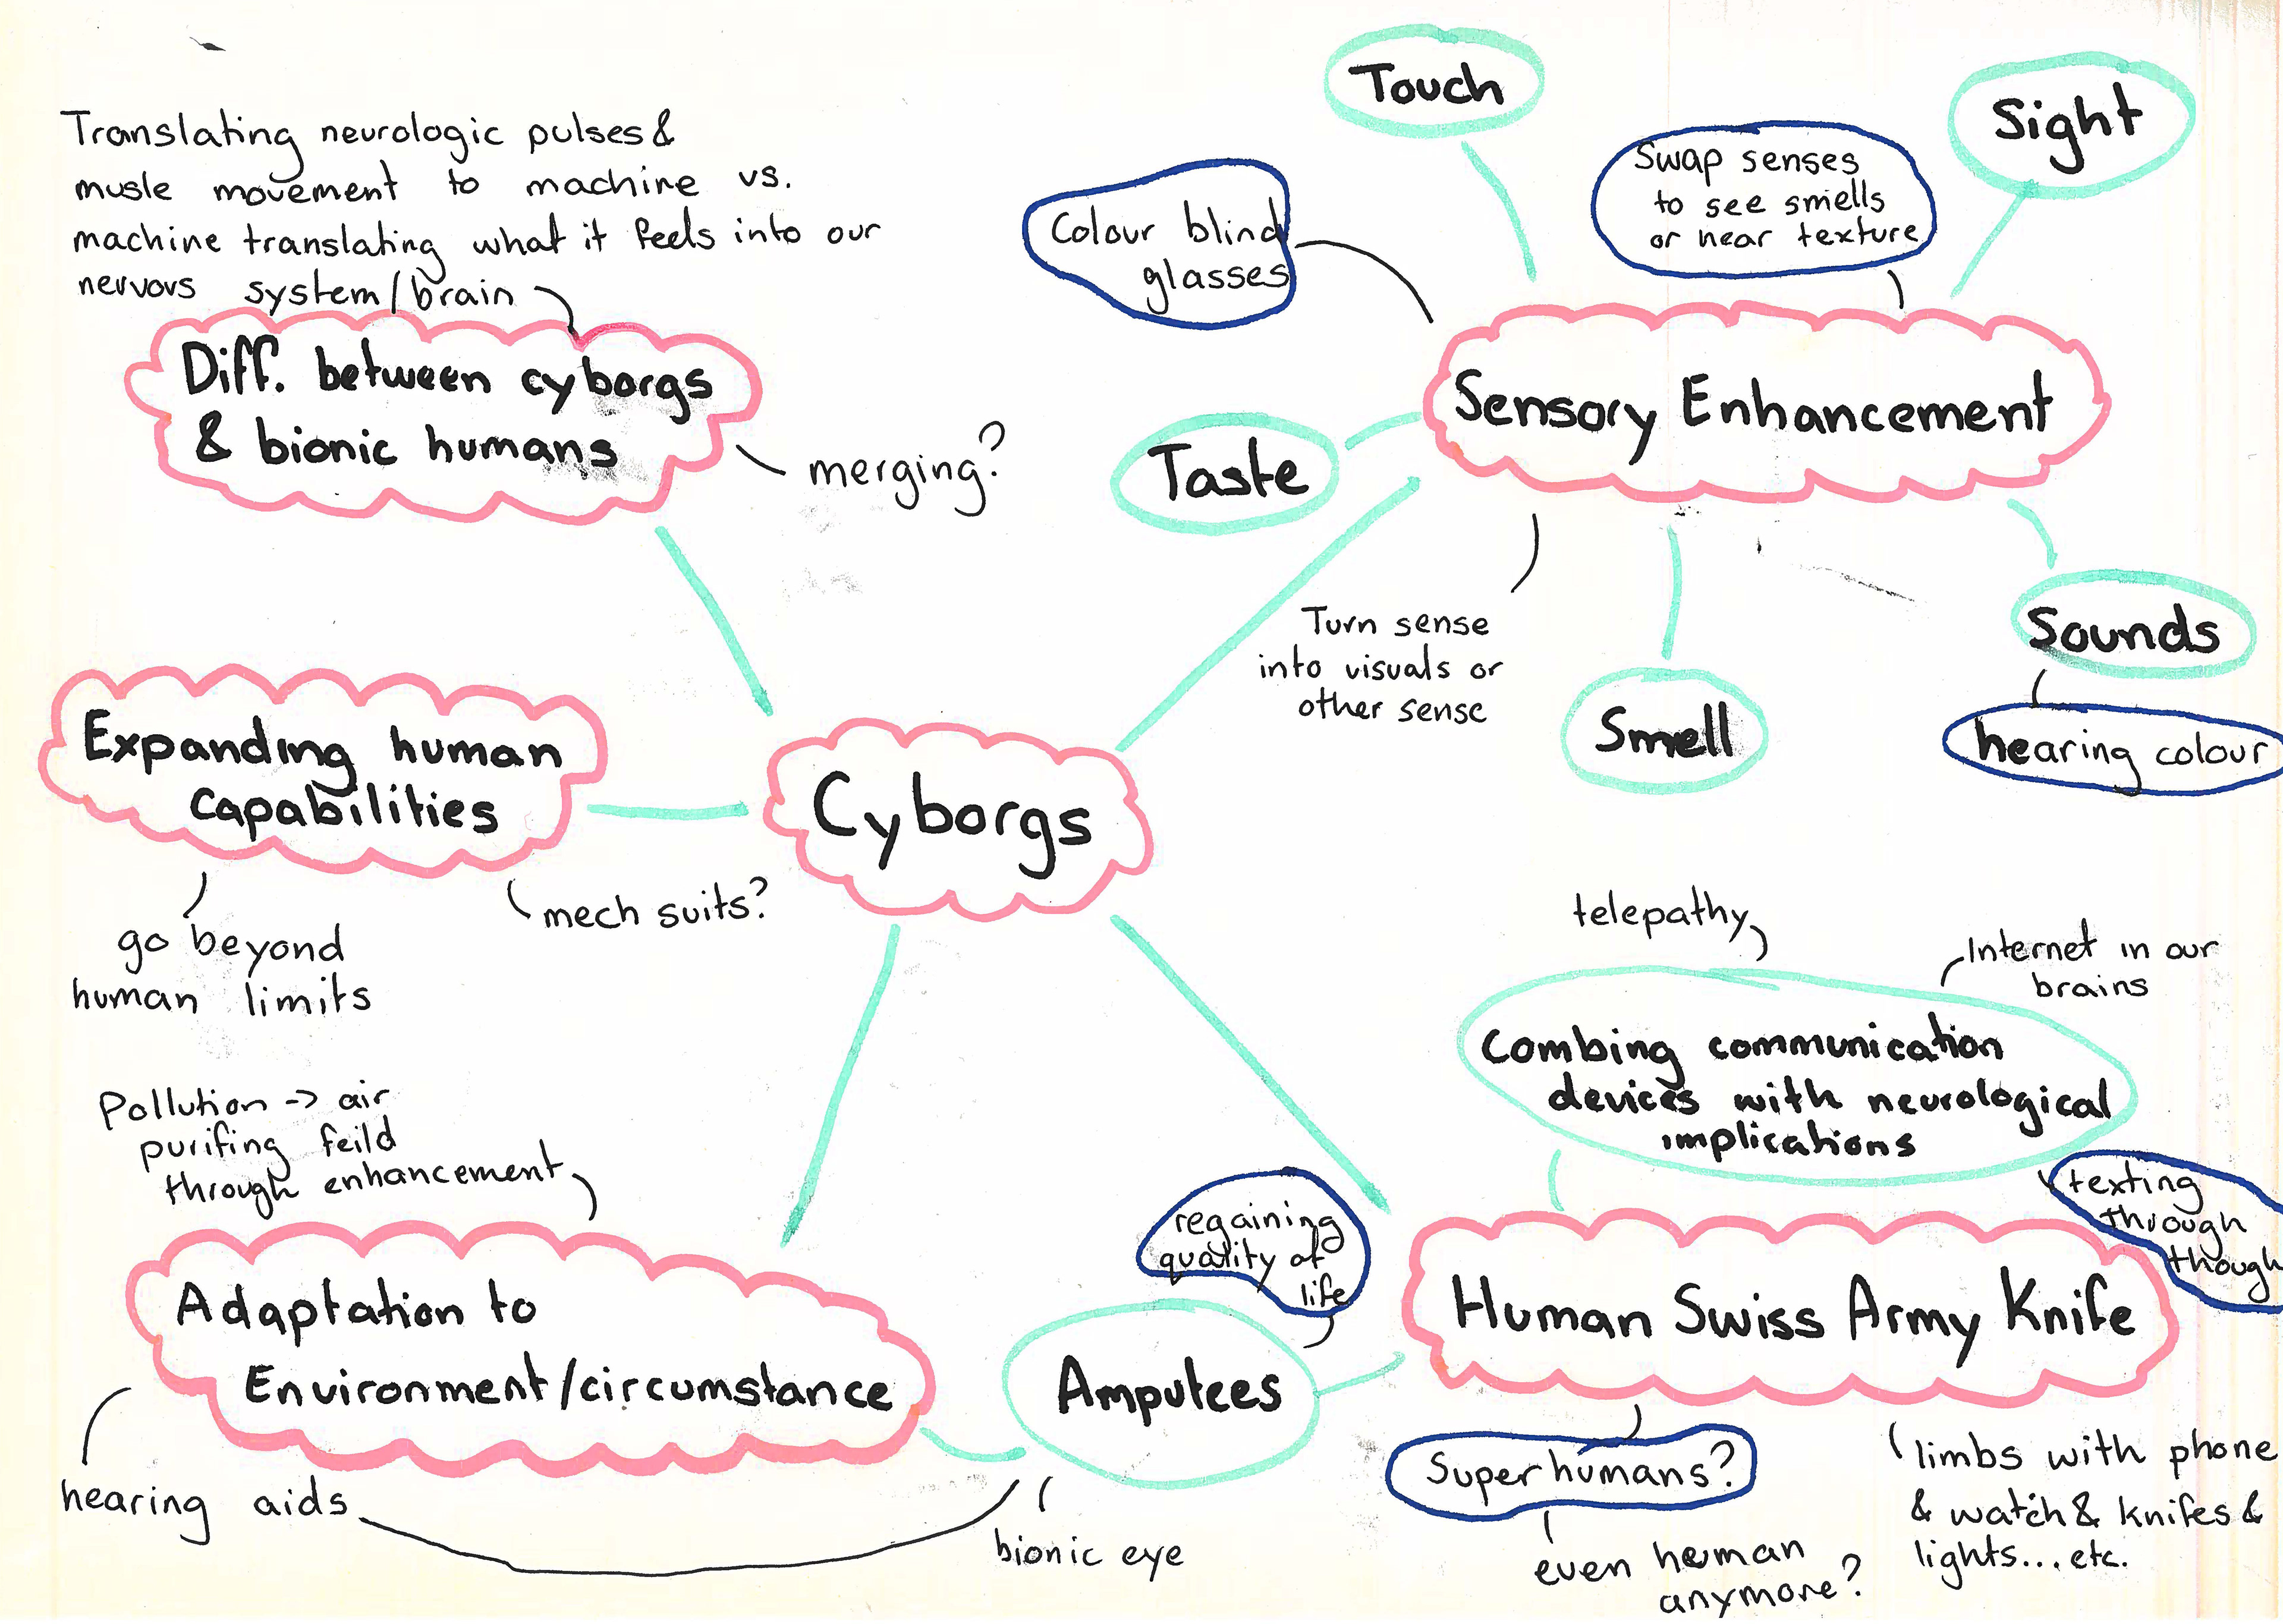 Translating neurologic pulses &
musle movement to machine vs.
machine translating what it feels into our
nervous system/brain
Diff. between cyborgs
& bionic humans
merging?
Touch
Sight
Colour blind
glasses
Swap senses
to see smells
or hear texture
Sensory Enhancement
Taste
Turn sense
into visuals or
other sense
Smell
Sounds
hearing colour
Expanding human
capabilities
go beyond
human limits
mech suits?
Cyborgs
telepathy
Internet in our
brains
Combing communication
devices with neurological
implications
texting
through
though
Pollution -> air
purifing feild
through enhancement
Adaptation to
Environment/circumstance
hearing aids
regaining
quality of
life
Amputees
bionic eye
Human Swiss Army Knife
Super humans?
even human
anymore?
limbs with phone
& watch & knifes &
lights... etc.